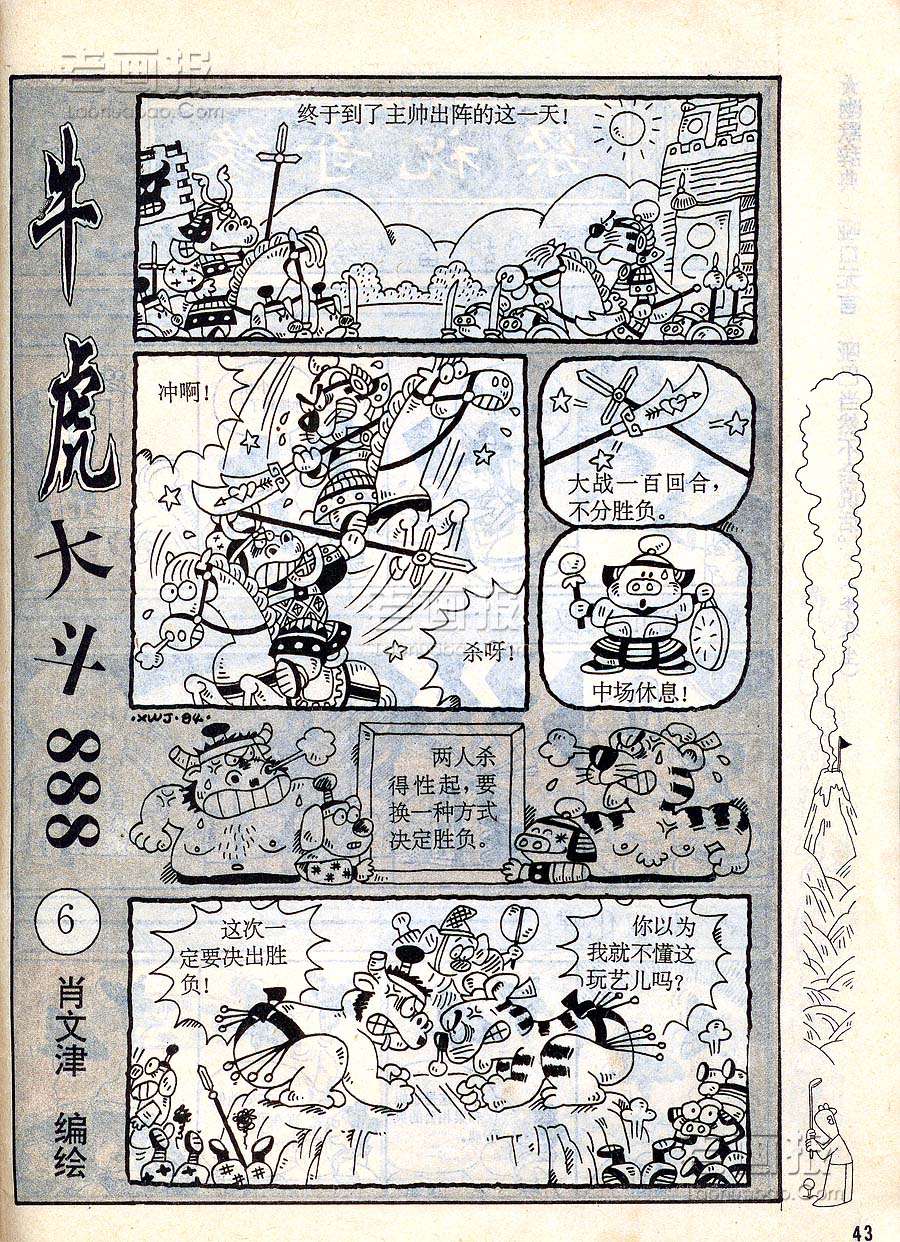 牛虎大斗888
6
肖文津 编绘
终于到了主帅出阵的这一天!
冲啊!
杀呀!
大战一百回合,
不分胜负。
中场休息!
·XWJ·94·
两人杀
得性起,要
换一种方式
决定胜负。
这次一
定要决出胜
负!
你以为
我就不懂这
玩艺儿吗?
老画报
LaoHuaBao.Com
老画报
老画报
LaoHuaBao.Com
43